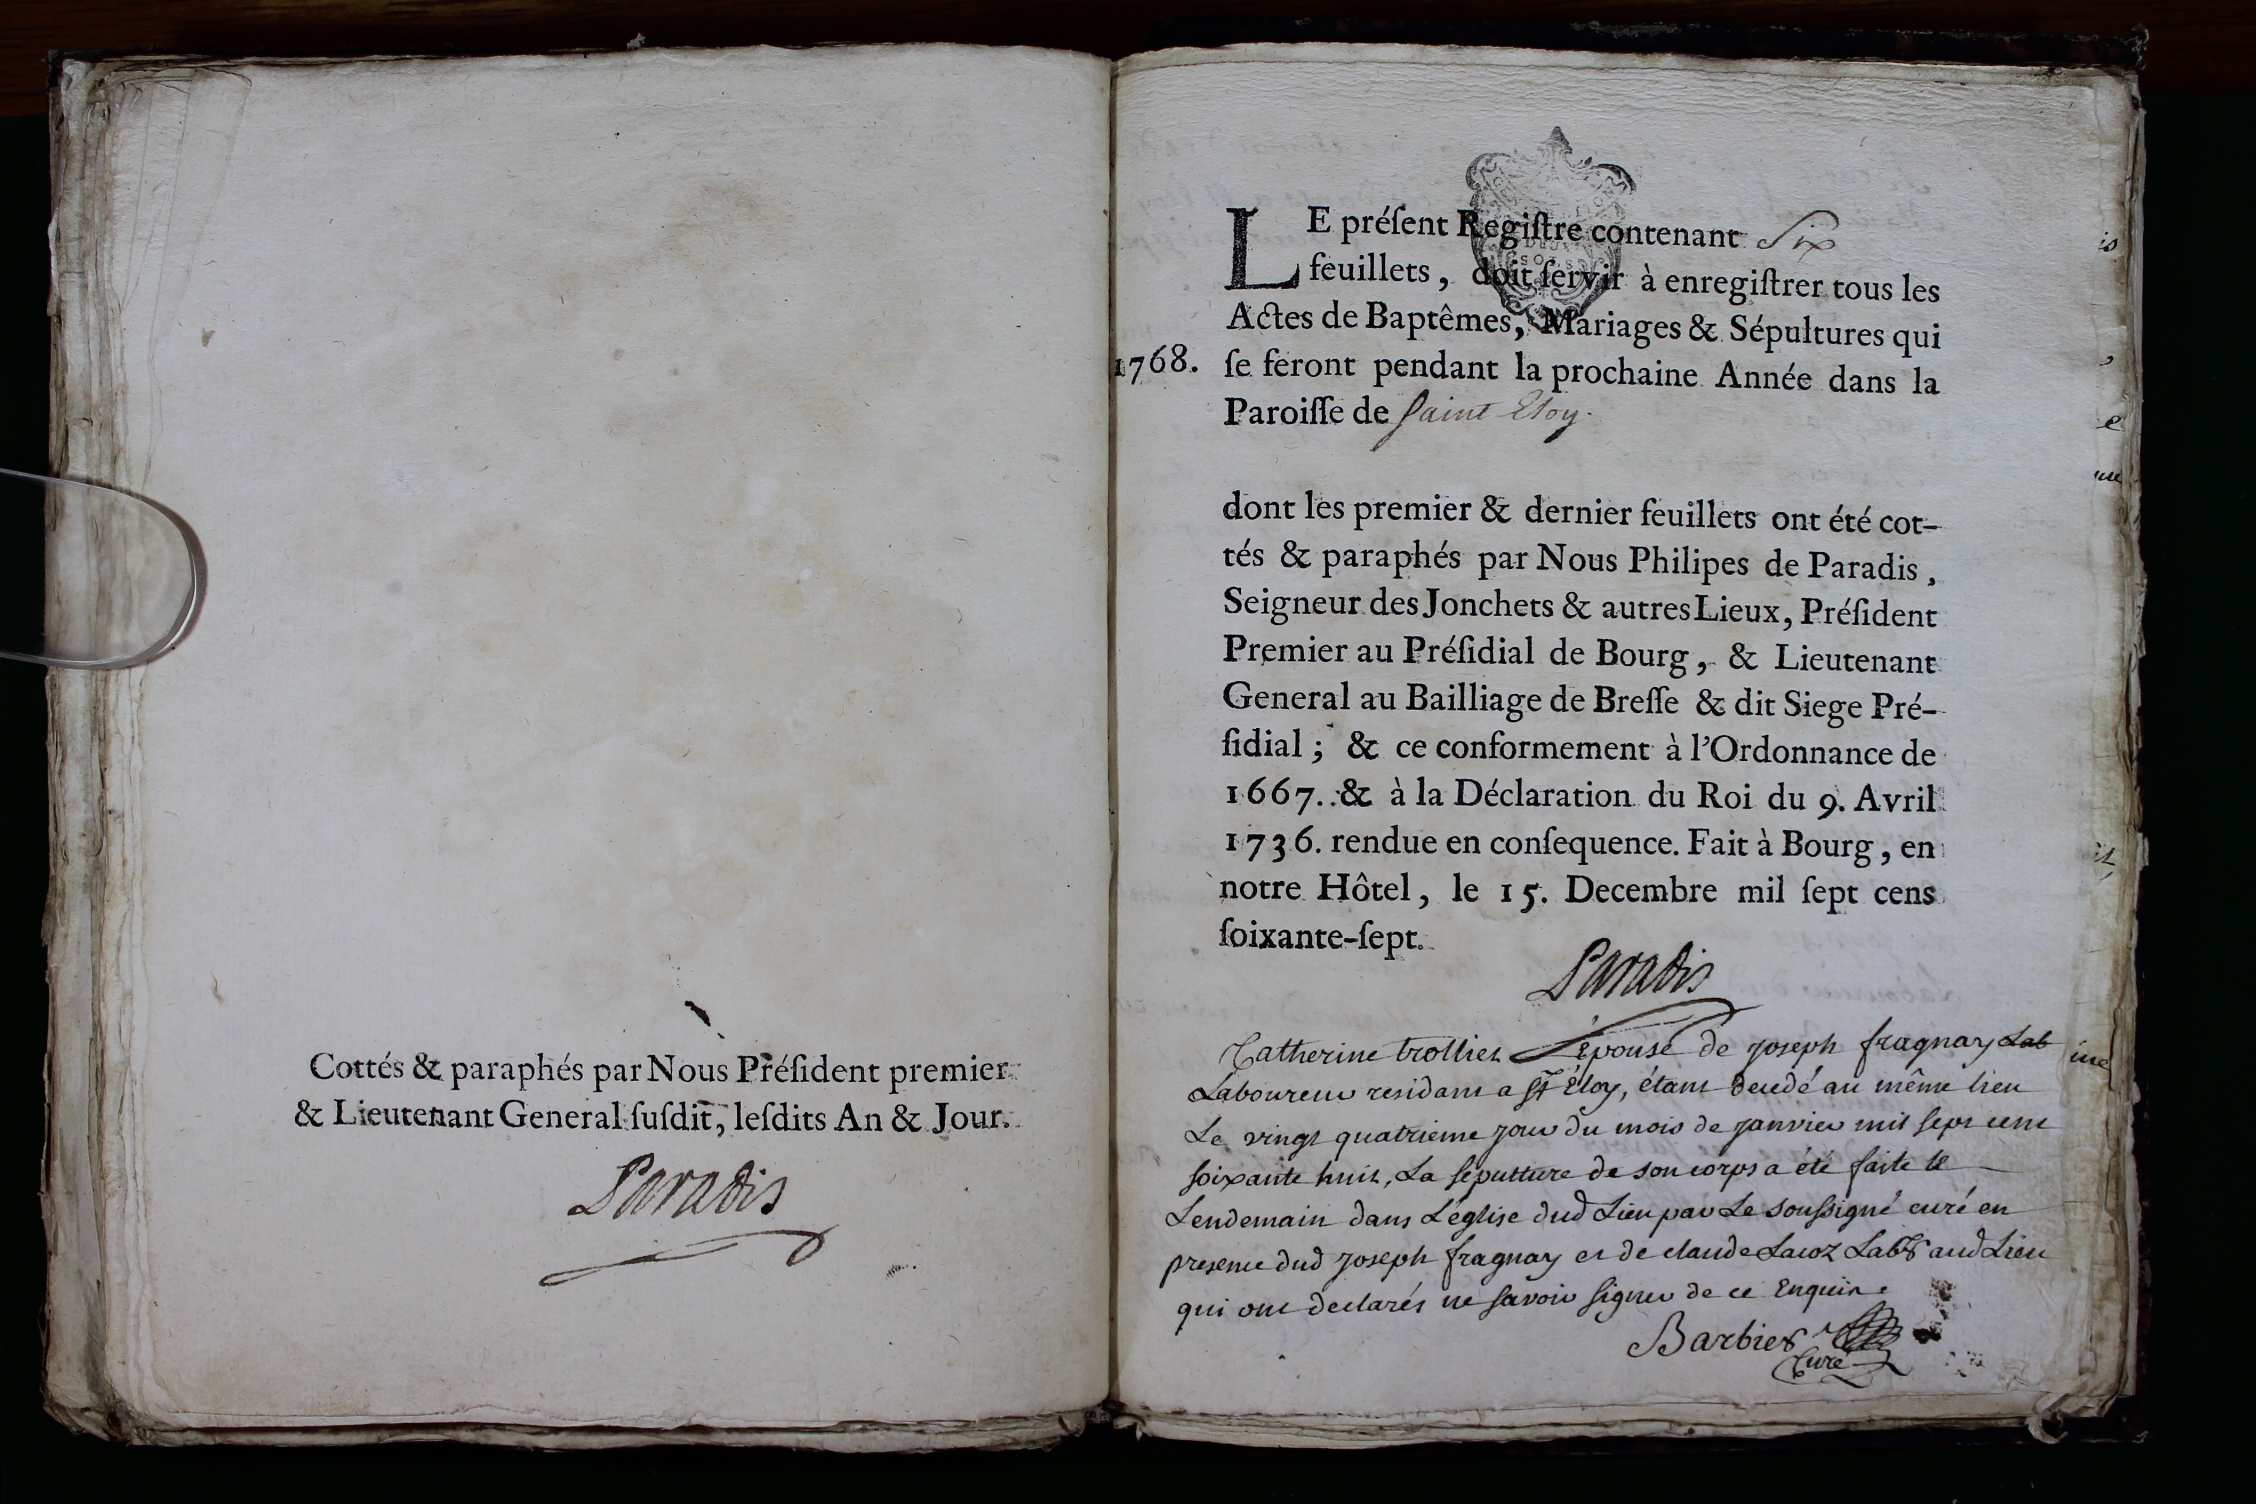 Cottés & paraphés par Nous Préſident premier
& Lieutenant General ſuſdit, leſdits An & Jour.
Paradis
LE préſent Regiſtre contenant Six
feuillets, doit ſervir à enregiſtrer tous les
Actes de Baptêmes, Mariages & Sépultures qui
1768. ſe feront pendant la prochaine Année dans la
Paroiſſe de Saint Eloy.
dont les premier & dernier feuillets ont été cot-
tés & paraphés par Nous Philipes de Paradis,
Seigneur des Jonchets & autres Lieux, Préſident
Premier au Préſidial de Bourg, & Lieutenant
General au Bailliage de Breſſe & dit Siege Pré-
ſidial; & ce conformement à l'Ordonnance de
1667. & à la Déclaration du Roi du 9. Avril
1736. rendue en conſequence. Fait à Bourg, en
notre Hôtel, le 15. Decembre mil ſept cens
ſoixante-ſept.
Paradis
Catherine trollier Epouse de joseph fragnay Lab
Laboureur residant a St Eloy, étant decedé au même lieu
Le vingt quatrieme jour du mois de janvier mil sept cent
soixante huit, La sepulture de son corps a été faite le
Lendemain dans L'église dud Lieu par Le soussigné curé en
presence dud joseph fragnay et de claude Lacoz Labr aud Lieu
qui ont declarés ne savoir signer de ce Enquis.
Barbier
Curé